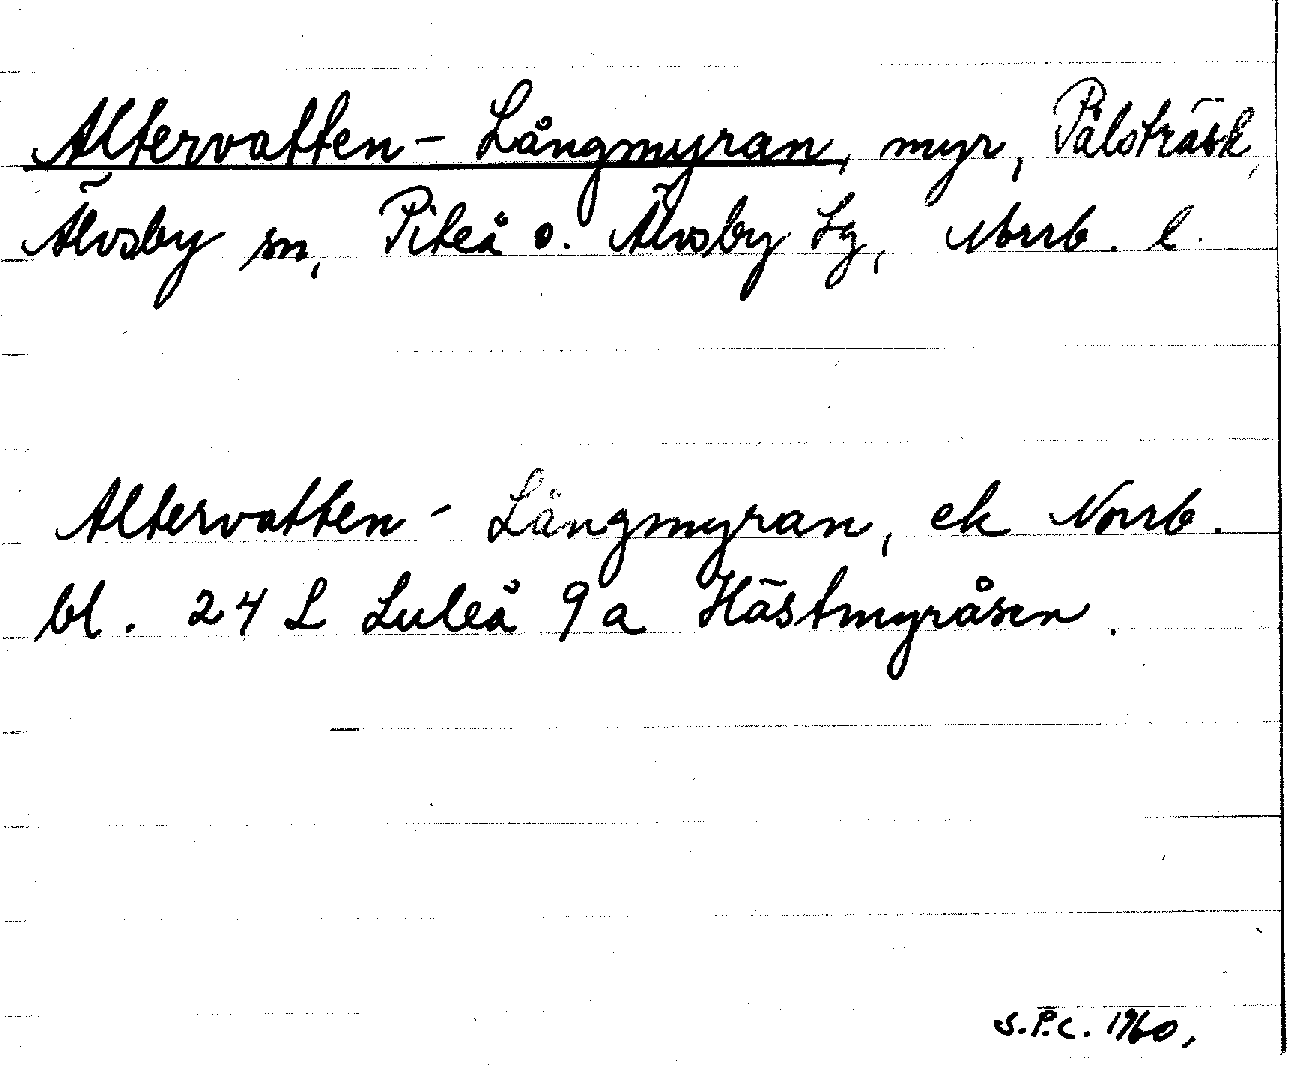 Altervatten - Långmyran, myr, Pålsträsk,
Älvsby sn, Piteå o. Älvsby tg, Norrb. l.
Altervatten - Långmyran, ek Norrb.
bl. 24 L Luleå 9 a Hästmyråsen.
S.P.C. 1960,